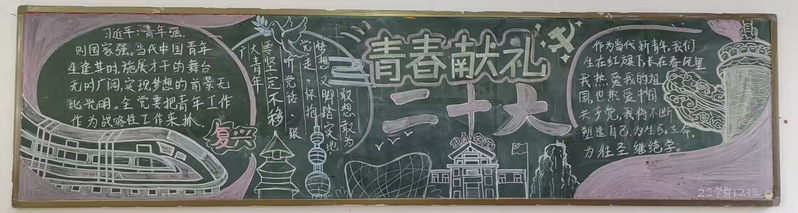 习近平:青年强,
则国家强。当代中国青年
生逢其时,施展才干的舞台
无比广阔,实现梦想的前景无
比光明。全党要把青年工作
作为战略性工作来抓
复兴
广大青年
要坚定不移
听党话、跟
党走,怀抱
梦想又脚踏实地
敢想敢为
青春献礼
二十大
作为当代新青年,我们
生在红旗下,长在春风里
我热爱我的祖
国,也热爱中国
共产党,我将不断
塑造自己,为生民立命,
为往圣继绝学。